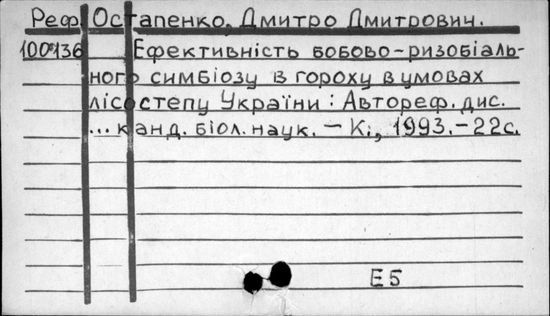 Реф. Остапенко, Дмитро Дмитрович.
100°136 Ефективність бобово-ризобіаль-
ного симбіозу в гороху в умовах
лісостепу України : Автореф. дис.
... канд. біол. наук. — К., 1993. – 22с.
Е5